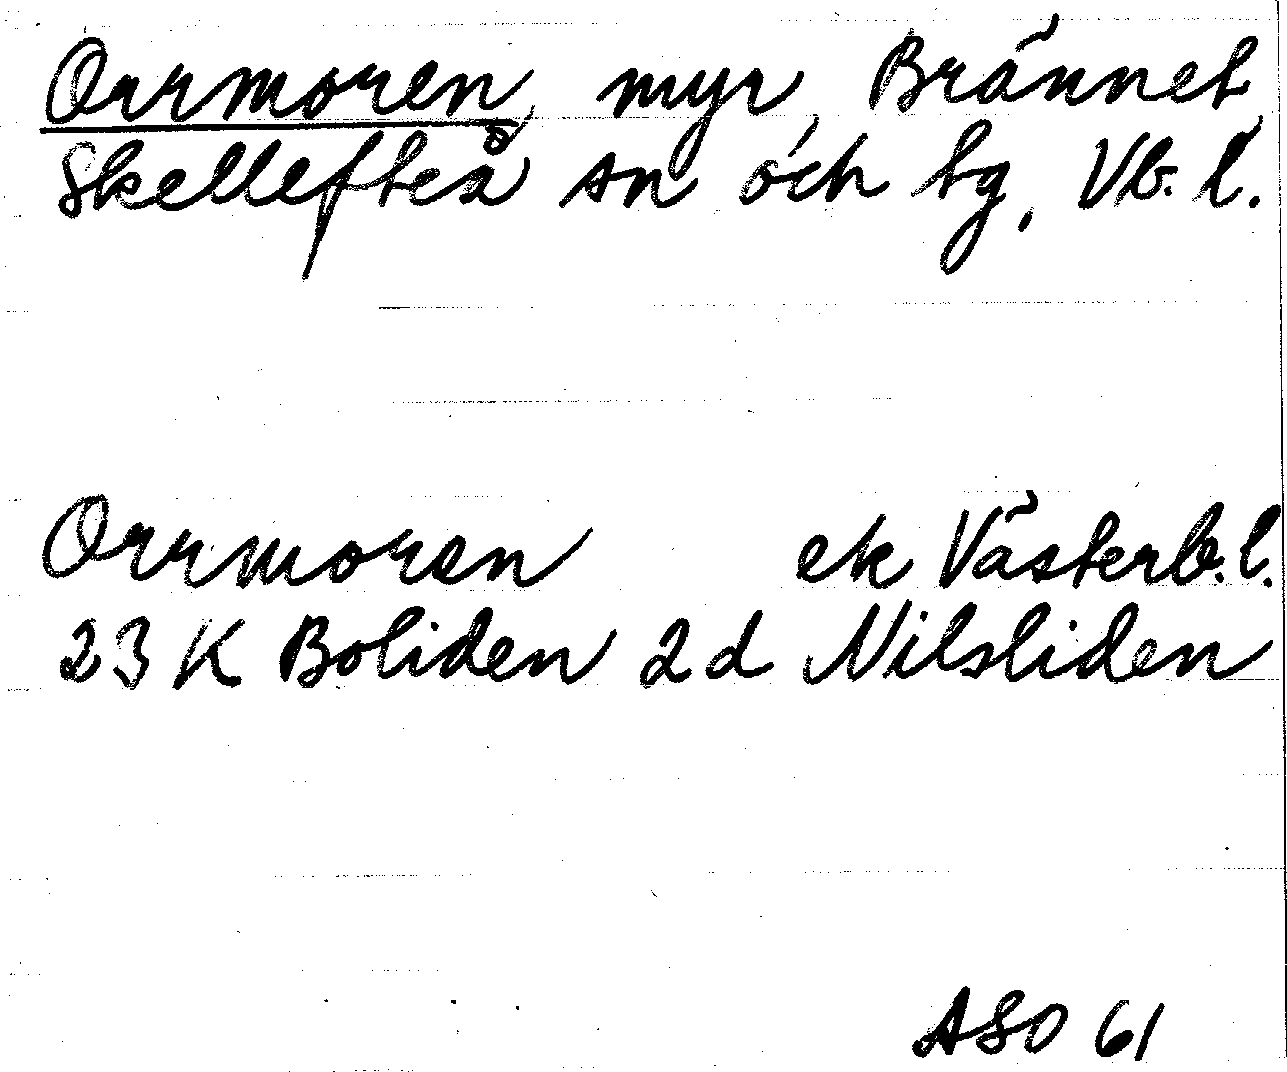 Orrmoren, myr, Brännet,
Skellefteå sn och tg, Vb. l.
Orrmoren ek Västerb. l.
23 K Boliden 2 d Nilsliden
ASO 61